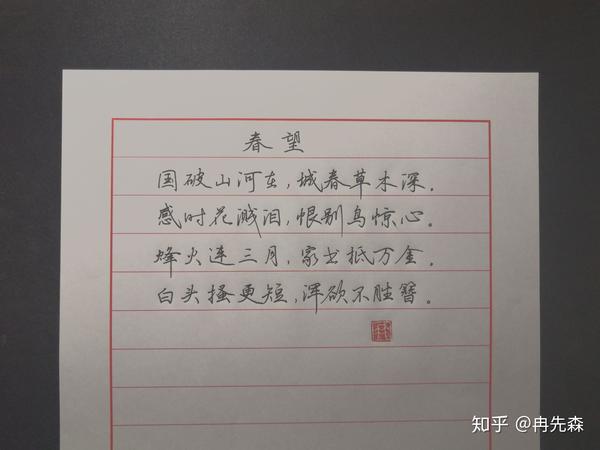 春望
国破山河在，城春草木深。
感时花溅泪，恨别鸟惊心。
烽火连三月，家书抵万金。
白头搔更短，浑欲不胜簪。
知乎 @冉先森